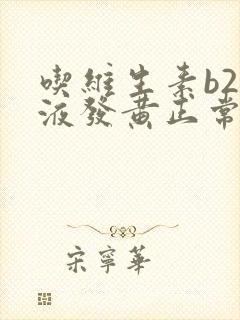 喫維生素b2
液發黃正常
宋寧華